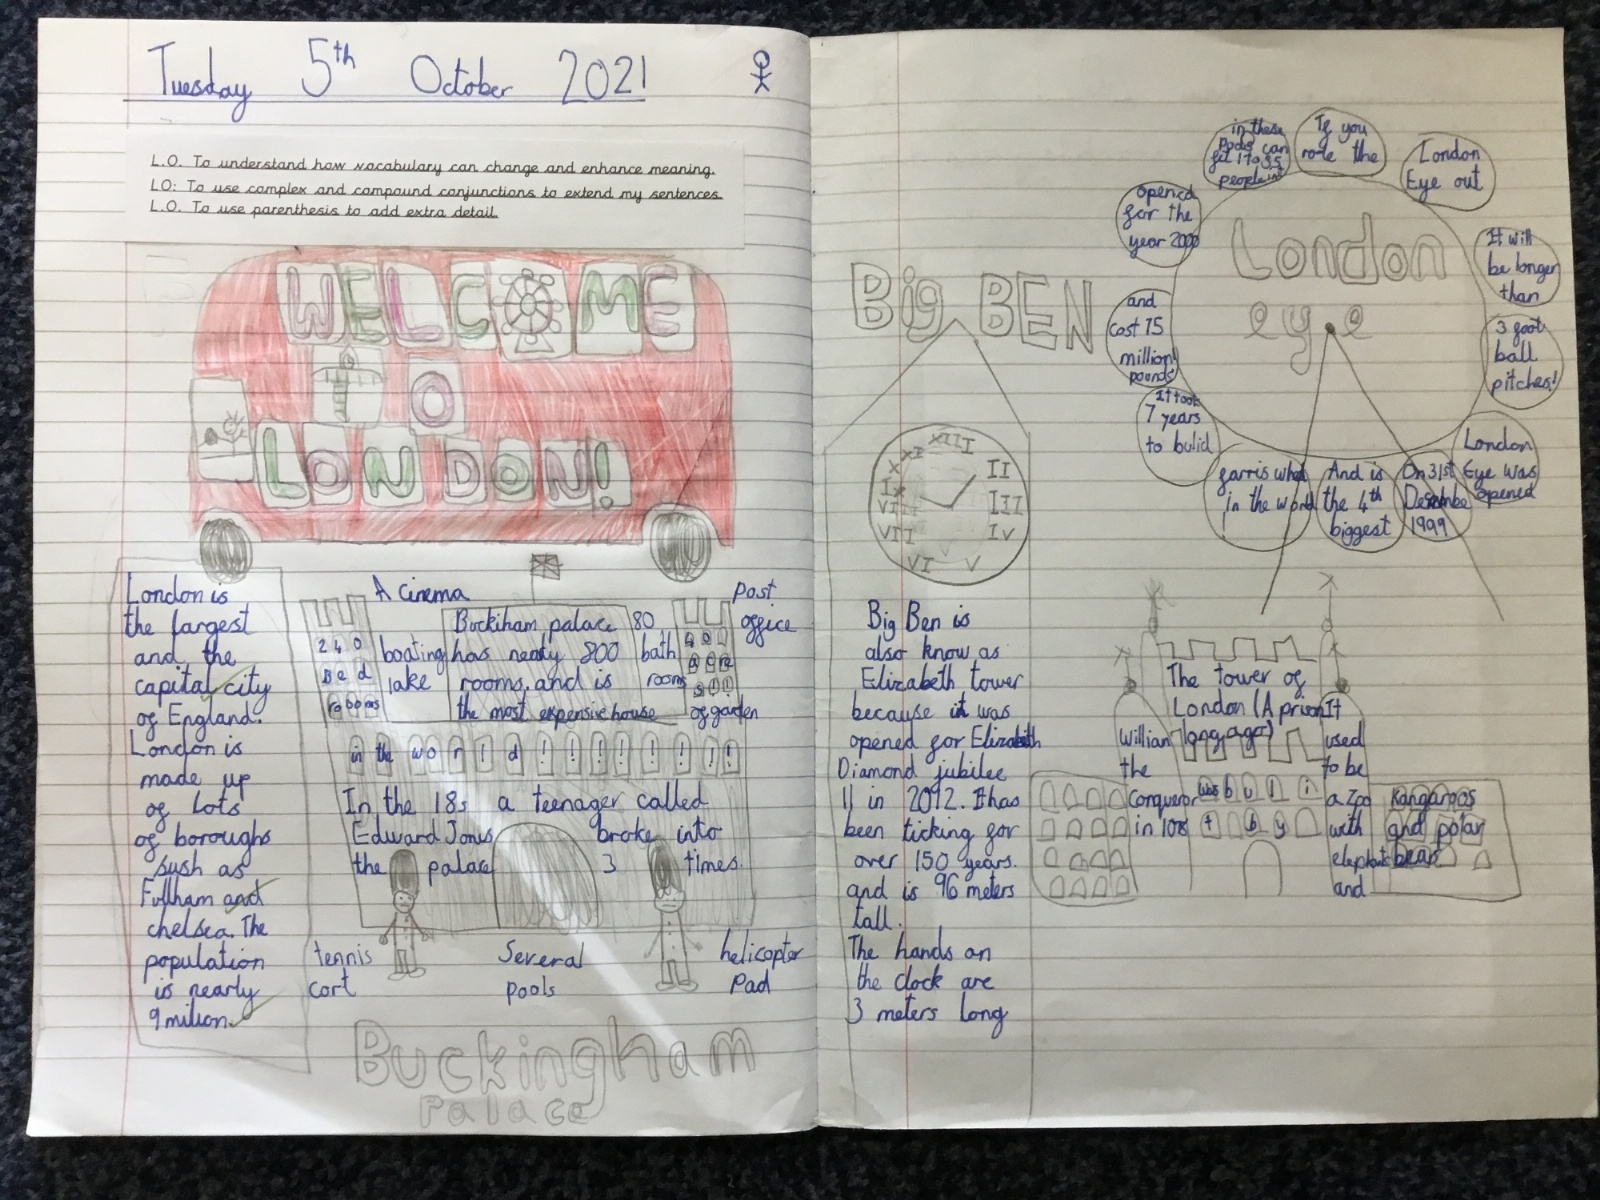 Tuesday 5th October 2021
L.O. To understand how vocabulary can change and enhance meaning.
LO: To use complex and compound conjunctions to extend my sentences.
L.O. To use parenthesis to add extra detail.
WELCOME
TO
LONDON!
London is
the largest
and the
capital city
of England.
London is
made up
of lots
of boroughs
sush as
Fulham and
chelsea. The
population
is nearly
9 milion.
A cinema
240
Bed
rooms
boating
lake
Buckiham palace
has nearly 800
rooms, and is
the most expensive house
in the world!!!!!!!!
80
bath
rooms
Post
office
of garden
In the 18s a teenager called
Edward Jones broke into
the palace 3 times.
tennis
cort
Several
pools
helicopter
Pad
Buckingham
Palace
Big BEN
XIII
II
III
IV
V
VI
VII
VIII
IX
X
XI
Big Ben is
also know as
Elizabeth tower
because it was
opened for Elizabeth
Diamond jubilee
11 in 2012. It has
been ticking for
over 150 years.
and is 96 meters
tall.
The hands on
the clock are
3 meters long
London
eye
If you
role the
London
Eye out
It will
be longer
than
3 foot
ball
pitches!
London
Eye was
opened
On 31st
1999
And is
the 4th
biggest
farris wheel
in the world
It took
7 years
to bulid
and
cost 75
million
pounds
opened
for the
year 2000
in these
pods can
fit 1 to 35
people in
The tower of
London (A prison
long ago)
William
the
Conqueror
in 108
was buli
t by
It
used
to be
a zoo
with
elephants
and
Kangaroos
and polar
bears